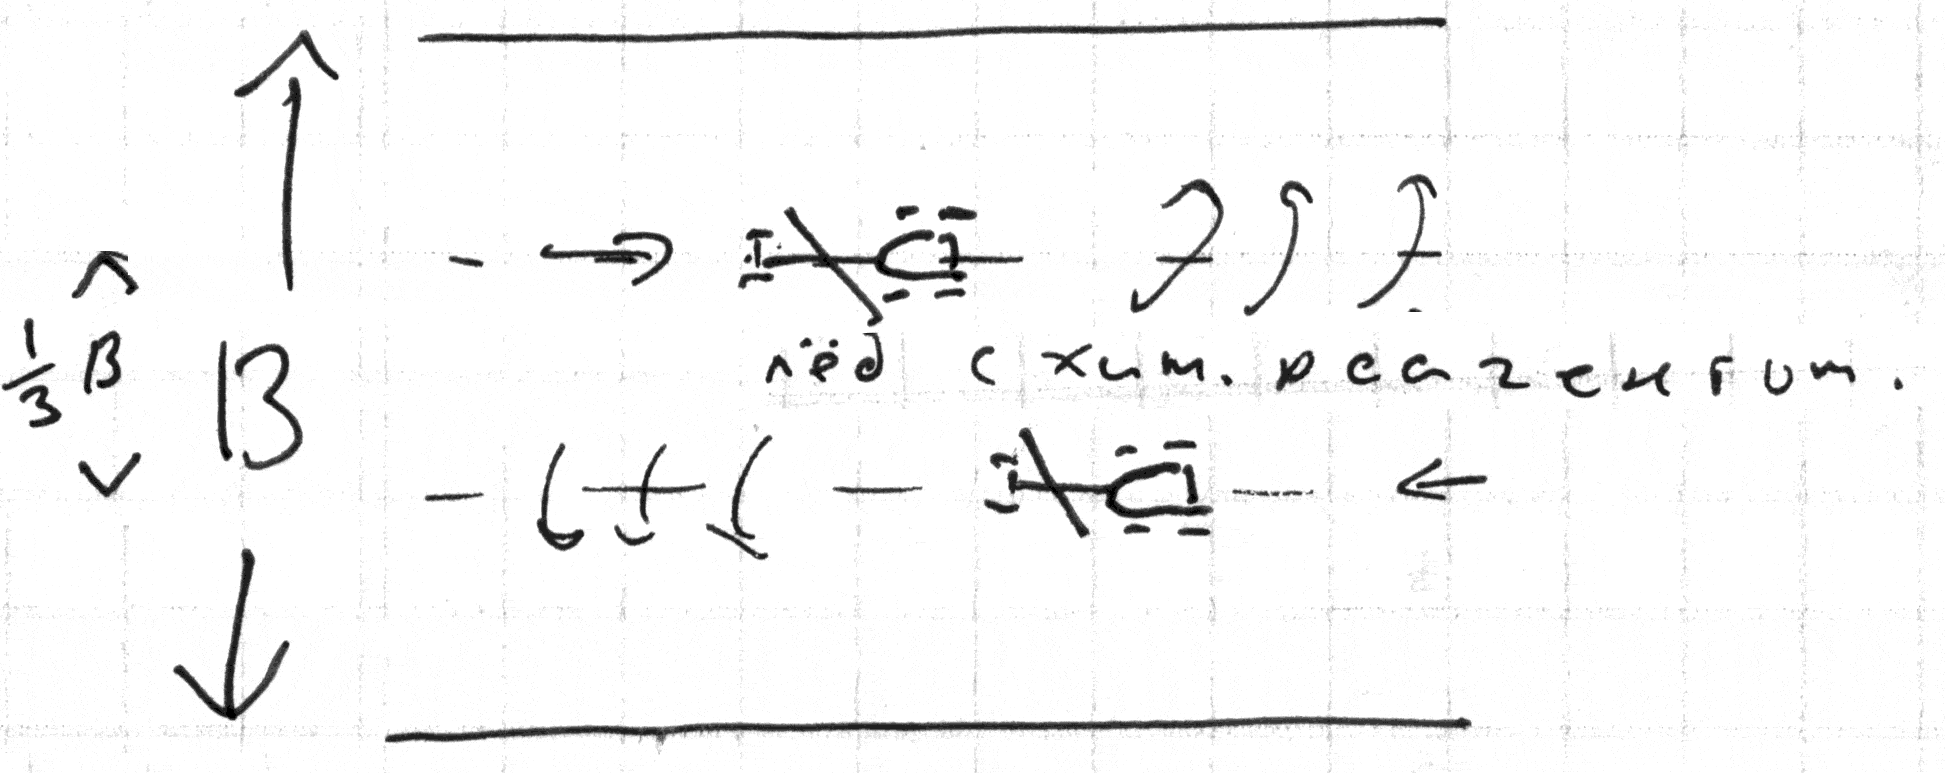 1/3 В
В
лёд с хим. реагентом.